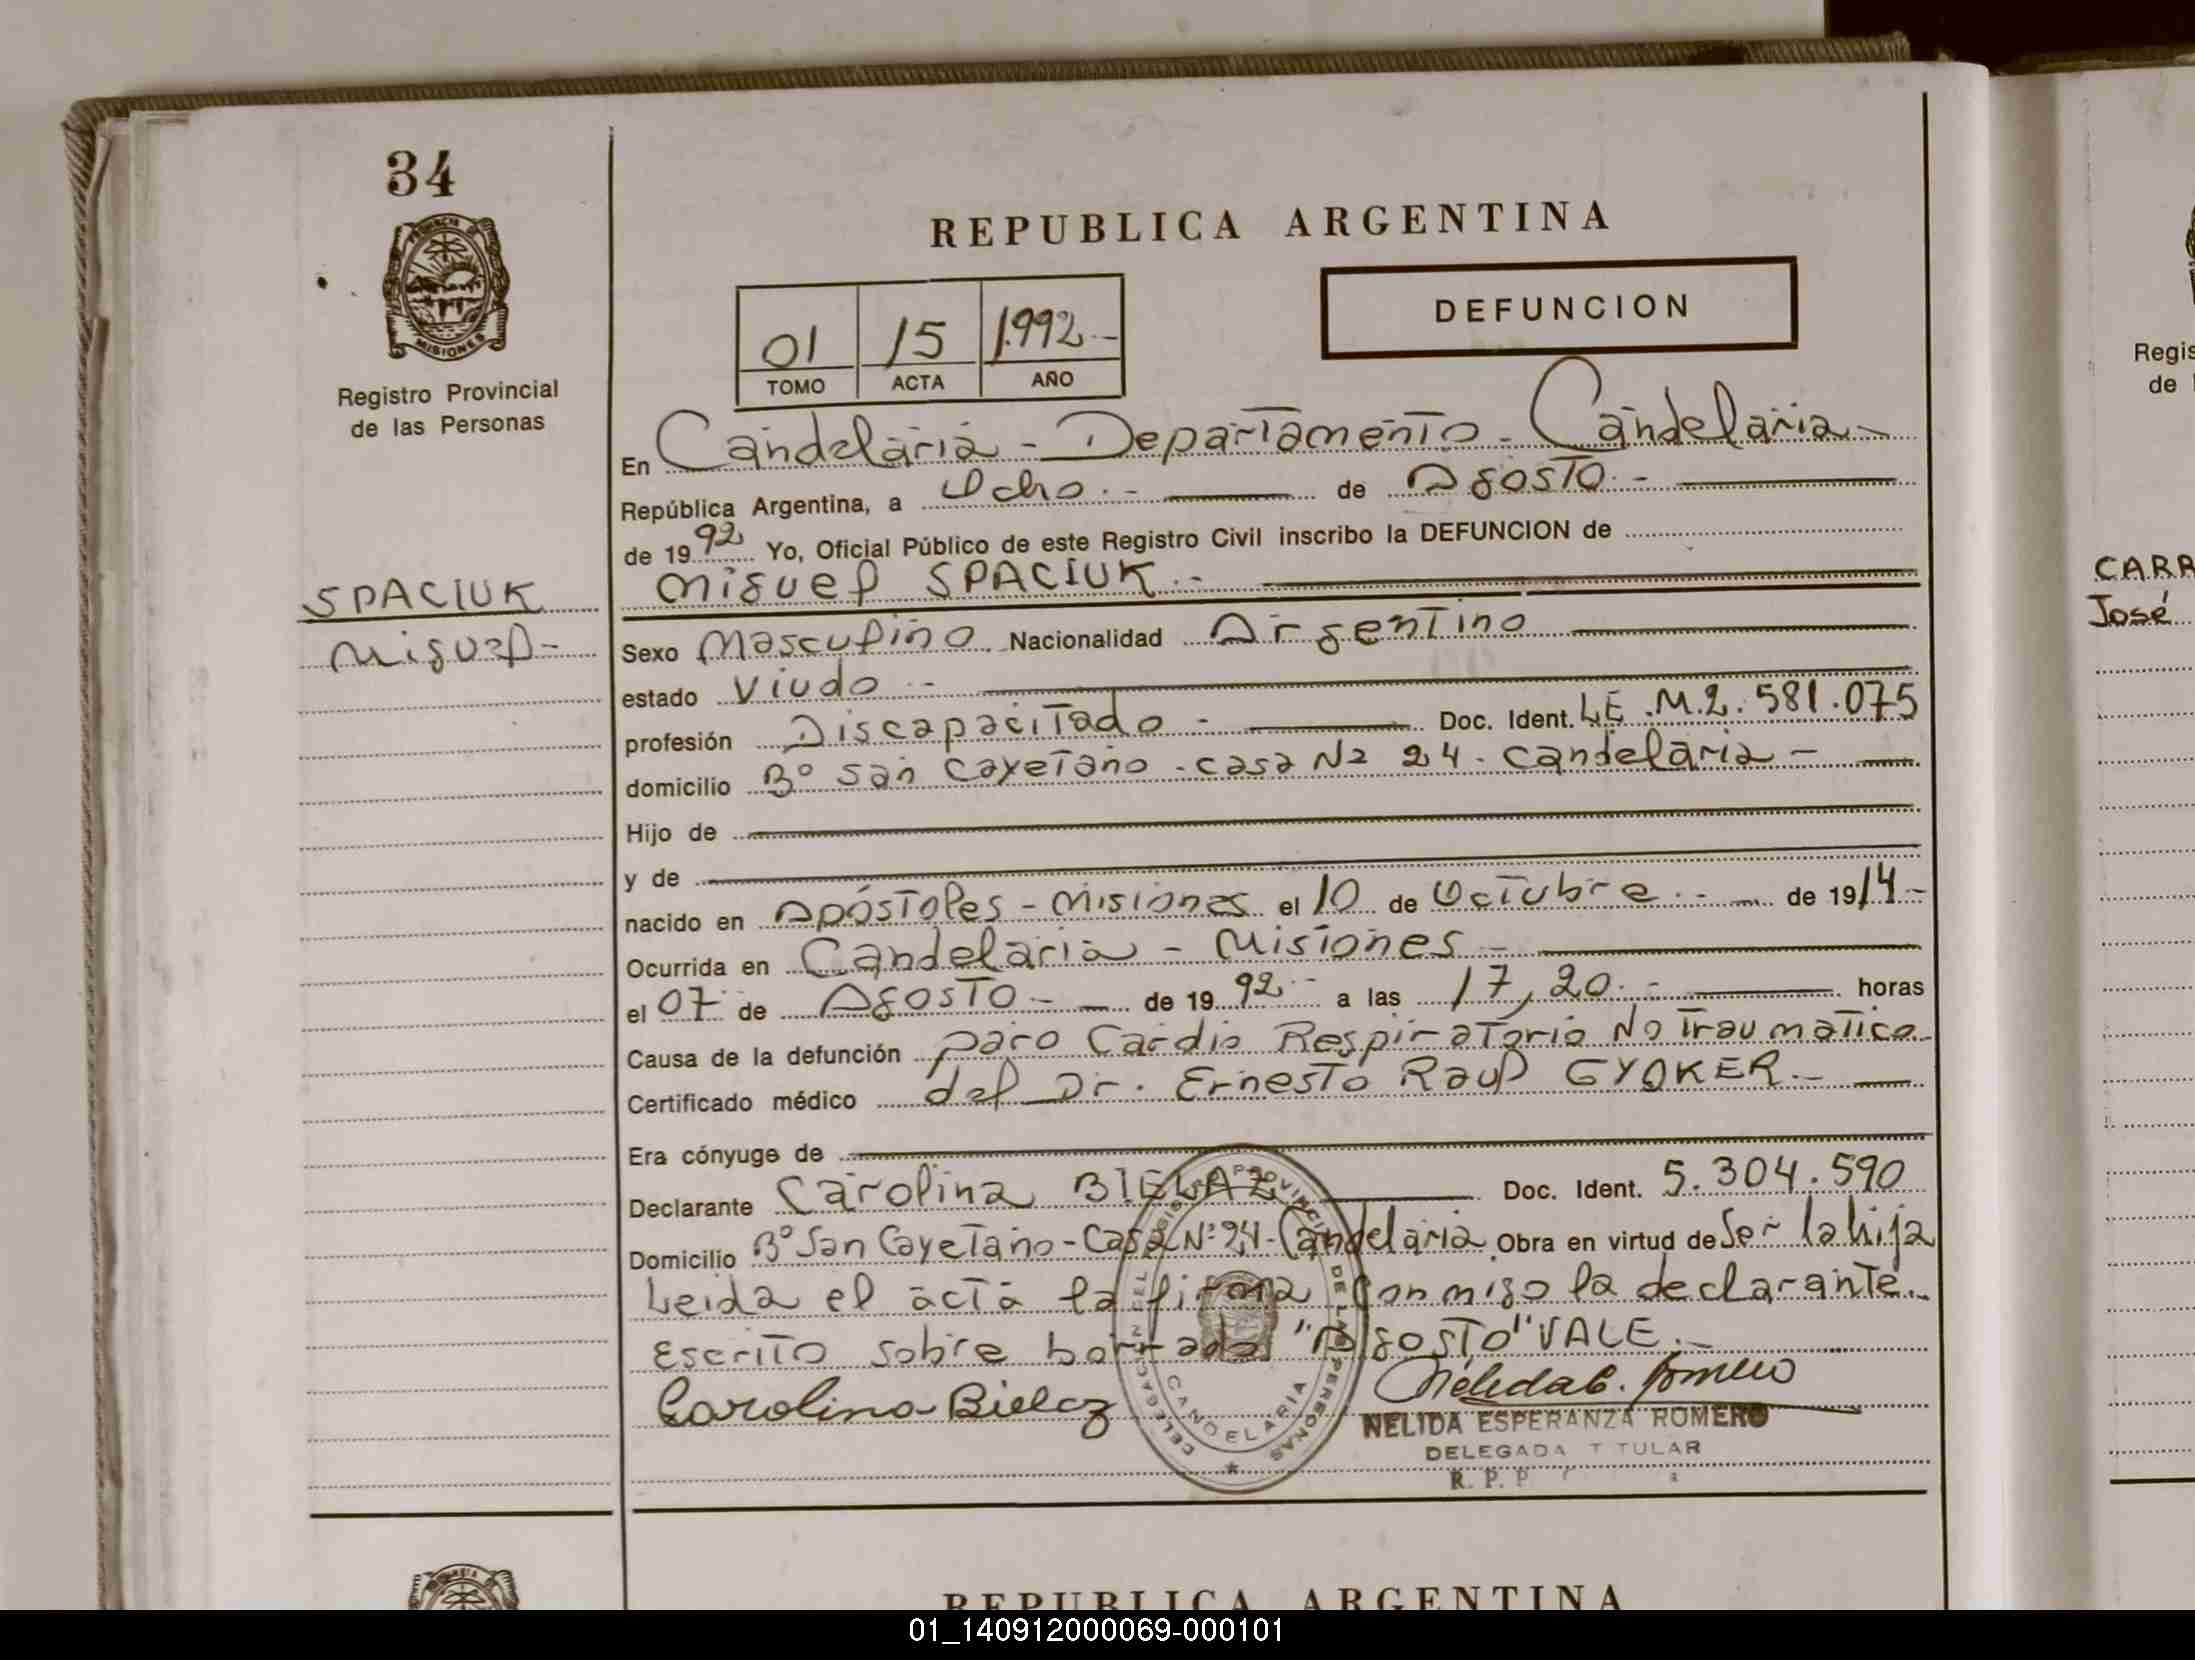 34
PROVINCIA DE
MISIONES
Registro Provincial
de las Personas
REPUBLICA ARGENTINA
01 15 1.992.-
TOMO ACTA AÑO
DEFUNCION
En Candelaria - Departamento - Candelaria -
República Argentina, a Ocho.- de Agosto.-
de 1992 Yo, Oficial Público de este Registro Civil inscribo la DEFUNCION de
SPACIUK
Miguel-
Miguel SPACIUK.-
Sexo Masculino. Nacionalidad Argentino
estado Viudo.-
profesión Discapacitado - Doc. Ident. LE.M.2.581.075
domicilio Bº San Cayetano - casa Nº 24 - Candelaria -
Hijo de
y de
nacido en Apóstoles - Misiones el 10 de Octubre.- de 1914.-
Ocurrida en Candelaria - Misiones -
el 07 de Agosto.- de 1992.- a las 17,20.- horas
Causa de la defunción paro Cardio Respiratorio No Traumatico.-
Certificado médico del Dr. Ernesto Raul GYOKER.-
Era cónyuge de
Declarante Carolina BIELAZ Doc. Ident. 5.304.590
Domicilio Bº San Cayetano - Casa Nº 24 - Candelaria Obra en virtud de Ser la hija
Leida el acta la firma conmigo la declarante.-
Escrito sobre borrado "Agosto" VALE.-
Carolina Bielaz
Nélida E. Romero
NELIDA ESPERANZA ROMERO
DELEGADA TITULAR
R. P. P.
CANDELARIA
Regis
de
CARR
José
REPUBLICA ARGENTINA
01_140912000069-000101